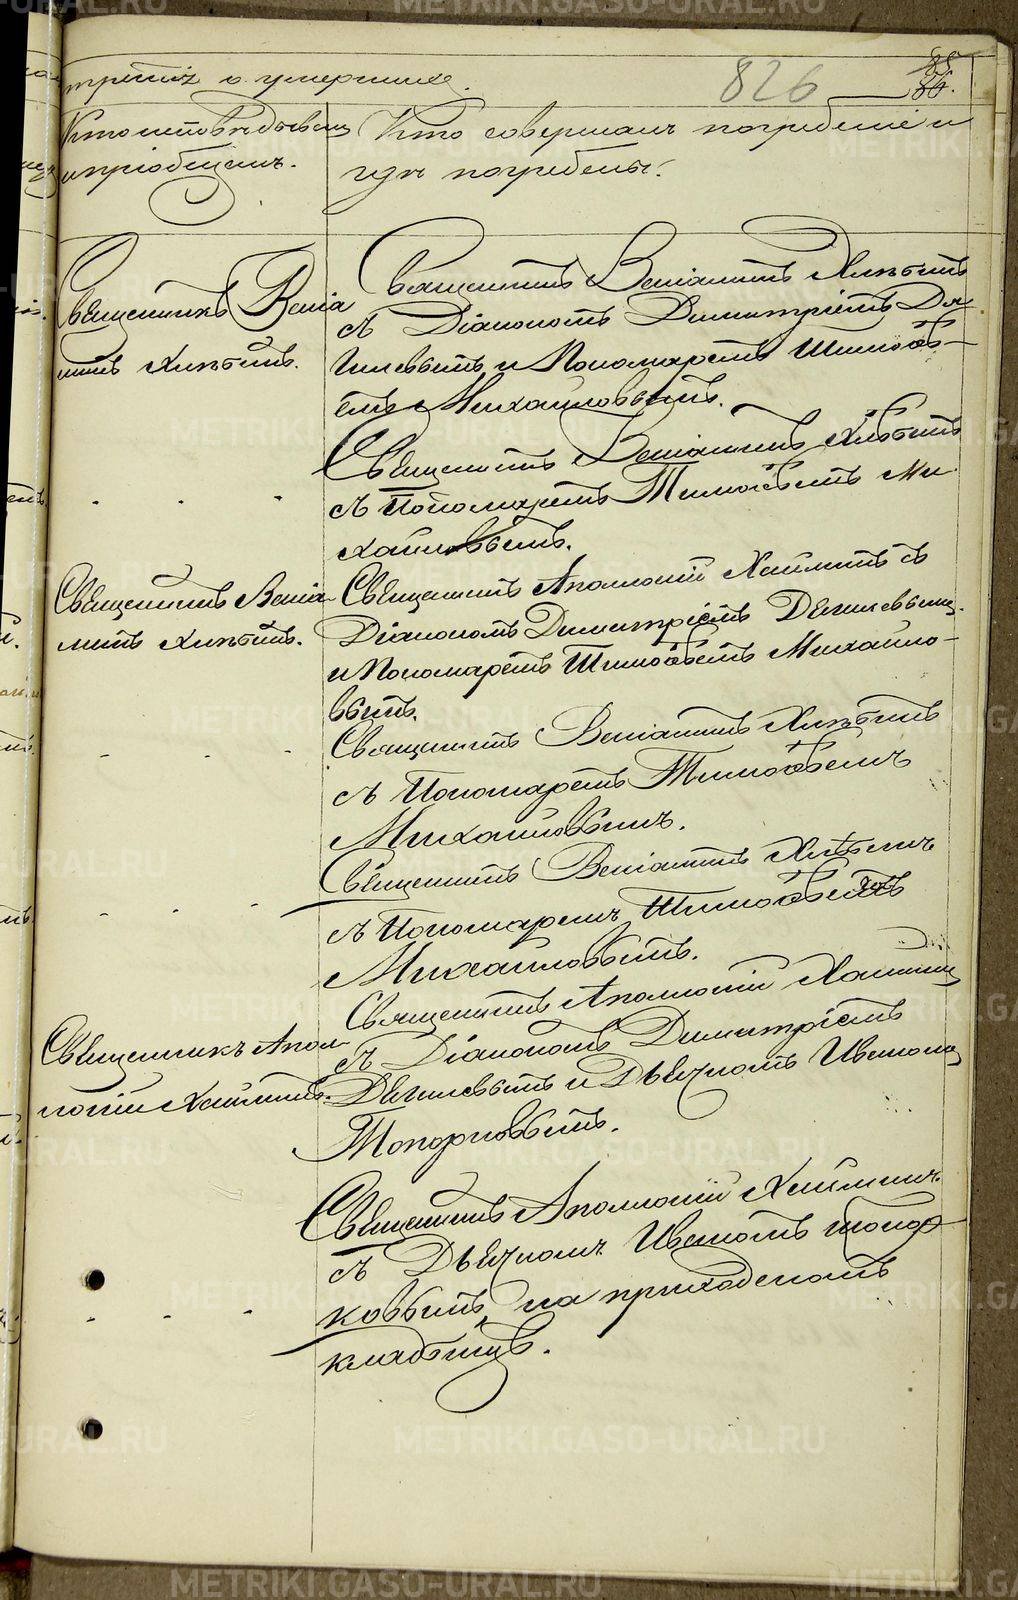 третія о умершихъ.
826
85
86.
Кто исповѣдывалъ
и пріобщалъ.
Кто совершалъ погребеніе и
гдѣ погребены.
Священникъ Веніа
минъ Хлѣбинъ.
Священникъ Веніаминъ Хлѣбинъ
съ Діакономъ Димитріемъ Да
ниловымъ и Пономаремъ Тимоѳѣ-
емъ Михайловымъ.
Священникъ Веніаминъ Хлѣбинъ
съ Пономаремъ Тимоѳѣемъ Ми
хайловымъ.
Священникъ Веніа
минъ Хлѣбинъ.
Священникъ Аполлоній Хаймин съ
Діакономъ Димитріемъ Даниловымъ
и Пономаремъ Тимоѳѣемъ Михайло-
вымъ.
Священникъ Веніаминъ Хлѣбинъ
съ Пономаремъ Тимоѳѣемъ
Михайловымъ.
Священникъ Веніаминъ Хлѣбинъ
съ Пономаремъ Тимоѳѣемъ
Михайловымъ.
Священникъ Апол
лоній Хайминъ.
Священникъ Аполлоній Хайминъ
съ Діакономъ Димитріемъ
Даниловымъ и Дьячкомъ Иваномъ
Топорковымъ.
Священникъ Аполлоній Хайминъ
съ Дьячкомъ Иваномъ Топор
ковымъ, на приходскомъ
кладбищѣ.
METRIKI.GASO-URAL.RU